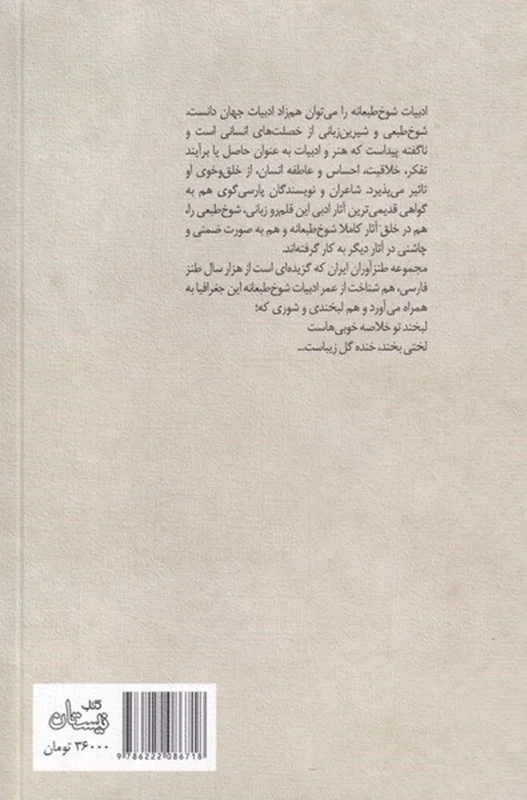 ادبیات شوخ‌طبعانه را می‌توان هم‌زاد ادبیات جهان دانست.
شوخ‌طبعی و شیرین‌زبانی از خصلت‌های انسانی است و
ناگفته پیداست که هنر و ادبیات به عنوان حاصل یا برآیند
تفکر، خلاقیت، احساس و عاطفه انسان، از خلق‌وخوی او
تاثیر می‌پذیرد. شاعران و نویسندگان پارسی‌گوی هم به
گواهی قدیمی‌ترین آثار ادبی این قلم‌رو زبانی، شوخ‌طبعی را،
هم در خلق آثار کاملا شوخ‌طبعانه و هم به صورت ضمنی و
چاشنی در آثار دیگر به کار گرفته‌اند.
مجموعه طنزآوران ایران که گزیده‌ای است از هزار سال طنز
فارسی، هم شناخت از عمر ادبیات شوخ‌طبعانه این جغرافیا به
همراه می‌آورد و هم لبخندی و شوری که؛
لبخند تو خلاصه خوبی‌هاست
لختی بخند، خنده گل زیباست...
کتاب
نیستان
۳۶۰۰۰ تومان
9 786222 086718